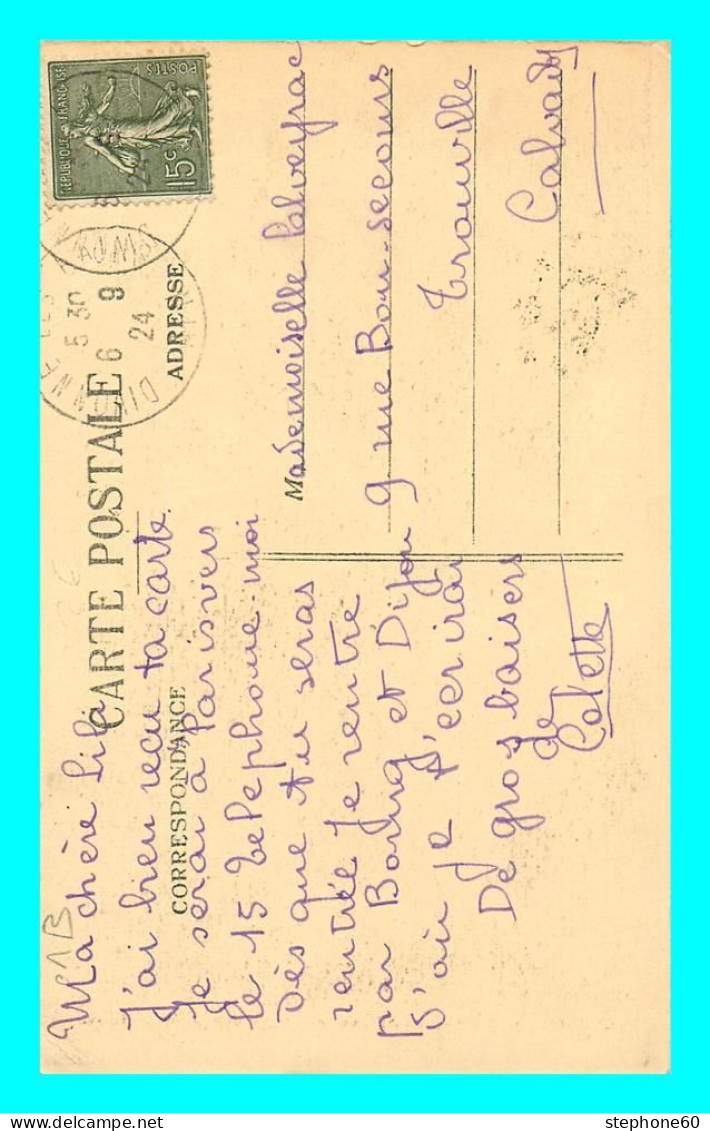 CARTE POSTALE
CORRESPONDANCE
ADRESSE
REPUBLIQUE FRANÇAISE
POSTES
15c
5 30
6 9
24
1B
Ma chère Lili
J'ai bien reçu ta carte.
Je serai à Paris vers
le 15 telephone-moi
dès que tu seras
rentrée Je rentre
par Bourg et Dijon
d'où je t'ecrirai
De gros baisers
de
Colette
Mademoiselle
9 rue Bon-secours
Trouville
Calvados
stephone60